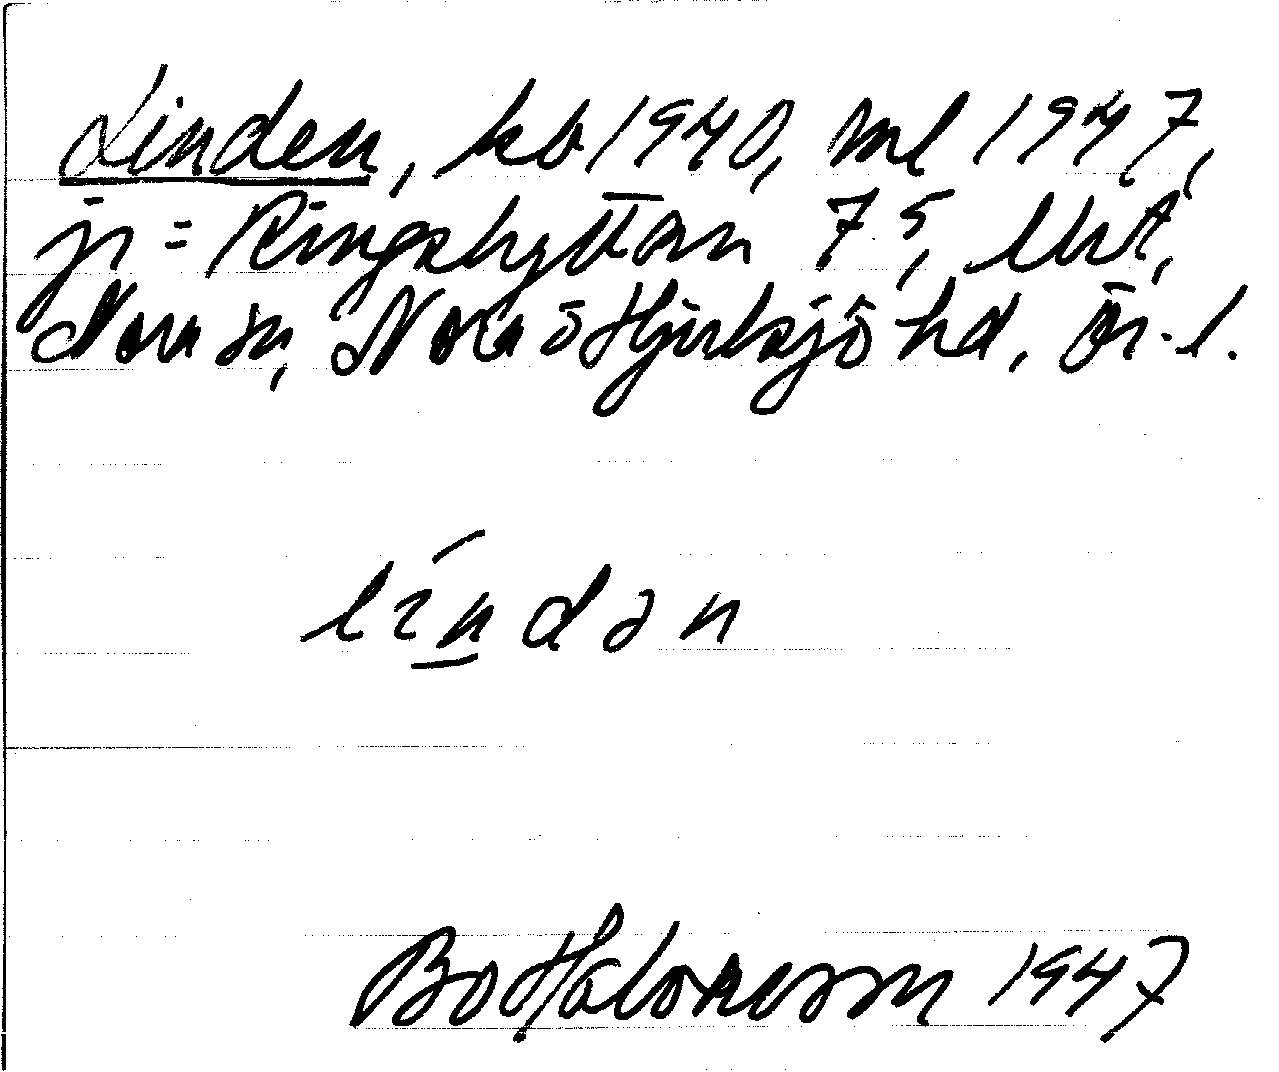 Linden, kb 1940, ml 1947,
jr = Ringshyttan 7⁵, Urt,
Nora sn, Nora o Hjulsjö hd, Ör. l.
líndən
Bo Halvarsson 1947